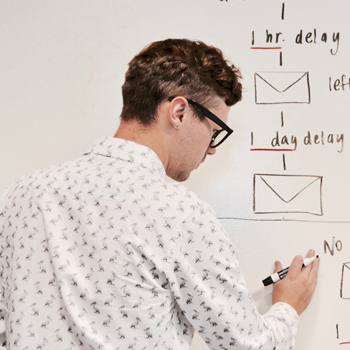 1 hr. delay
left
1 day delay
No
1